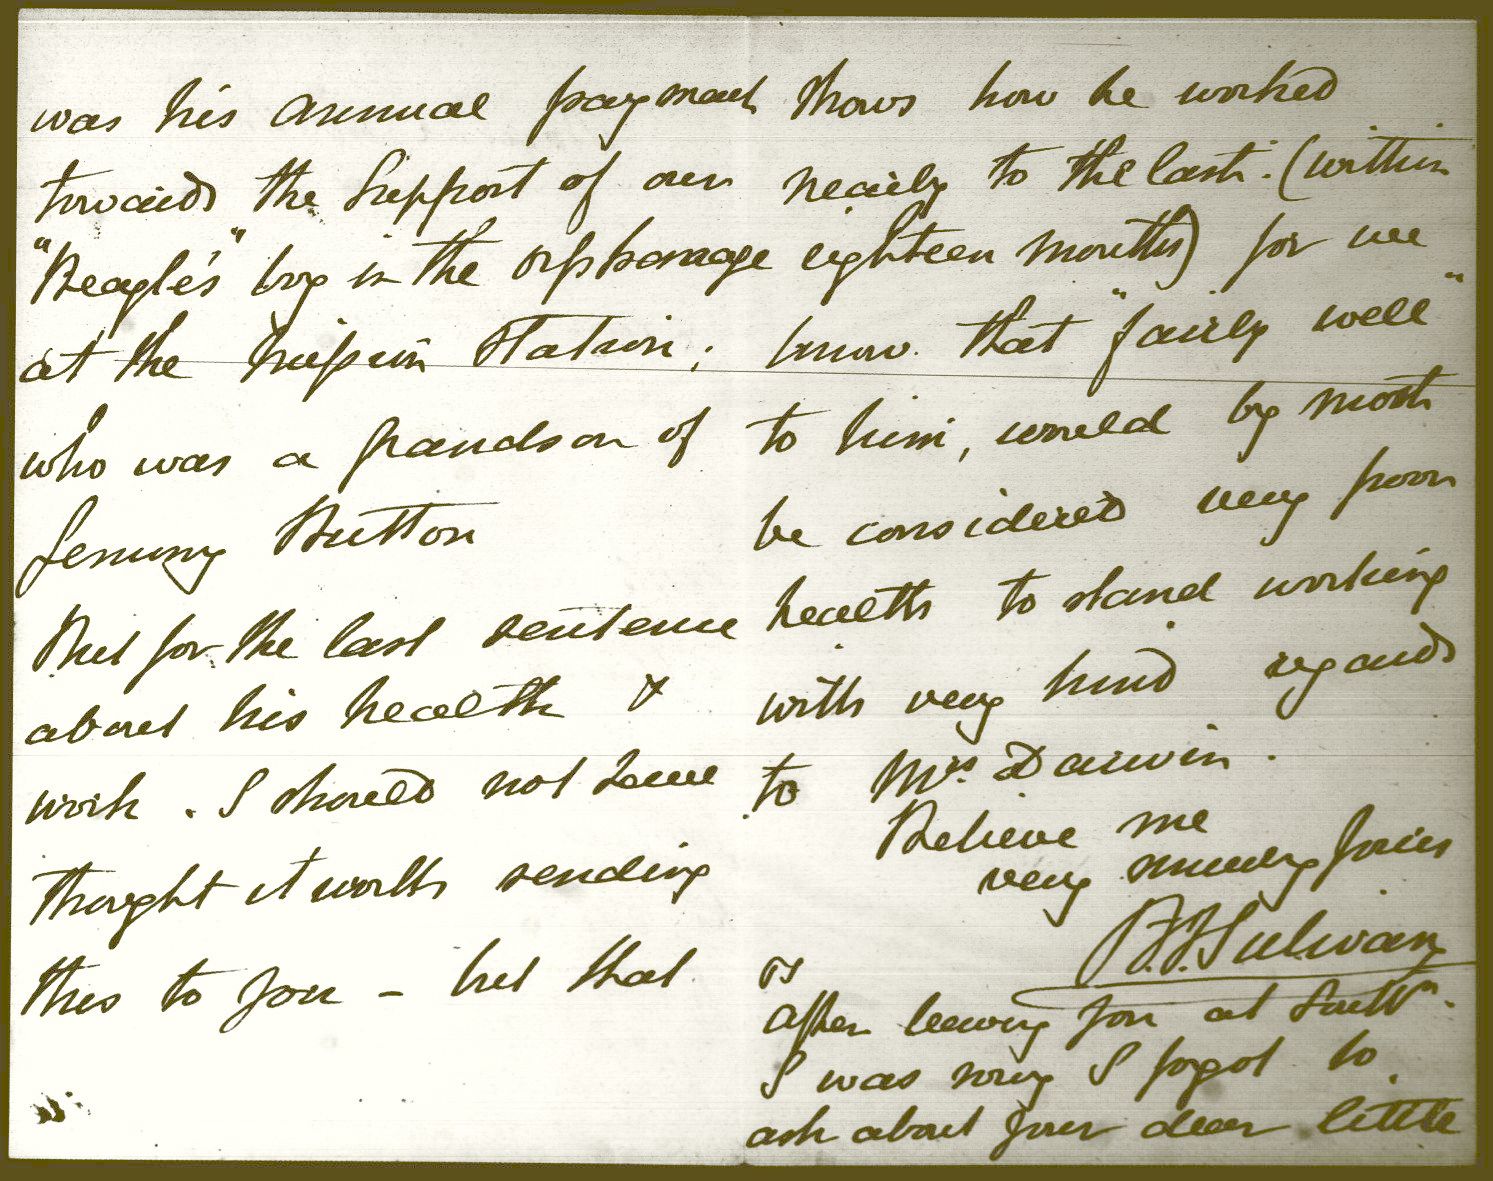 was his annual payment
towards the support of our
"Beagle's" boy in the orphanage
at the Mission Station;
who was a grandson of
Jemmy Button
But for the last sentence
about his health &
work. I should not have
thought it worth sending
this to you – but that
shows how he worked
nearly to the last. (within
eighteen months) for we
know that "fairly well"
to him, would by most
be considered very poor
health to stand working
with very kind regards
to Mrs. Darwin.
Believe me
very sincerely yours
B. J. Sulivan
PS
After leaving you at
I was sorry I forgot to
ask about your dear little